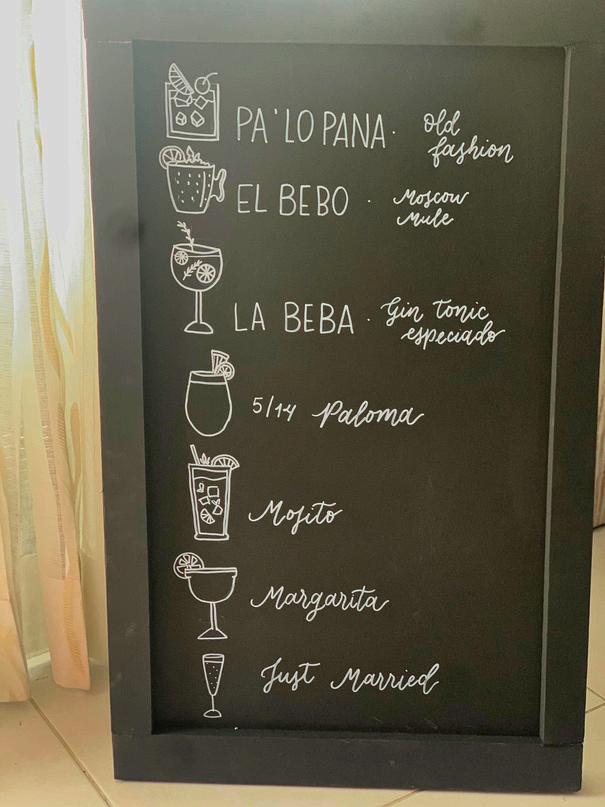 PA'LO PANA · Old fashion
EL BEBO · Moscow Mule
LA BEBA · Gin Tonic especiado
5/14 Paloma
Mojito
Margarita
Just Married